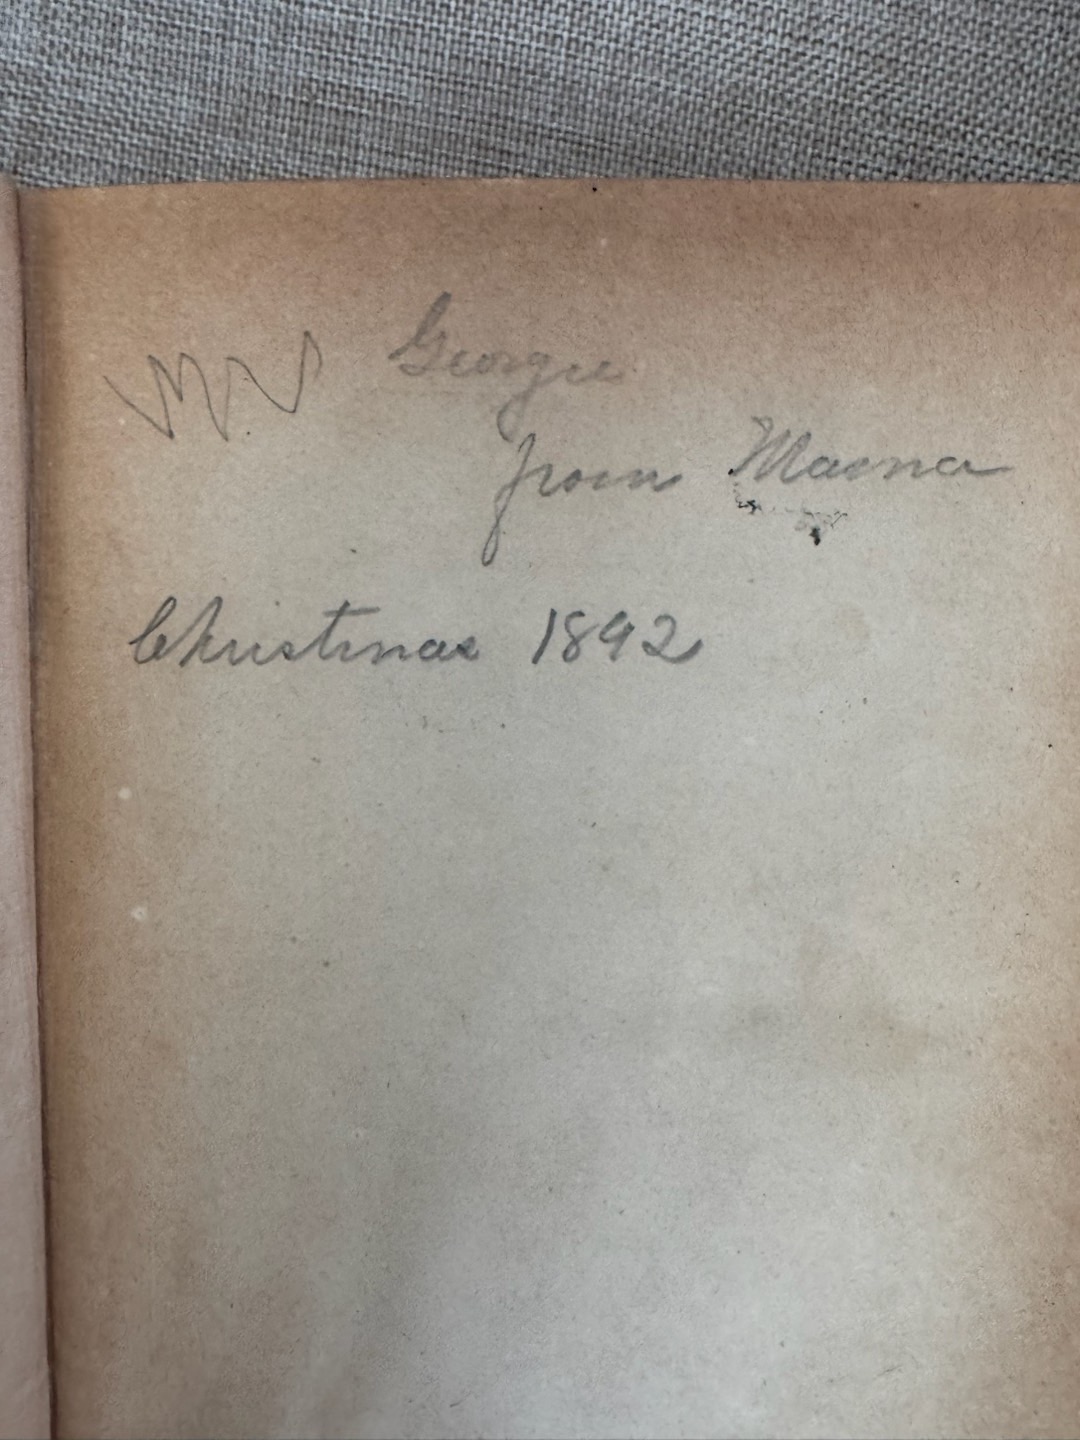 Georgie
from Mama
Christmas 1892